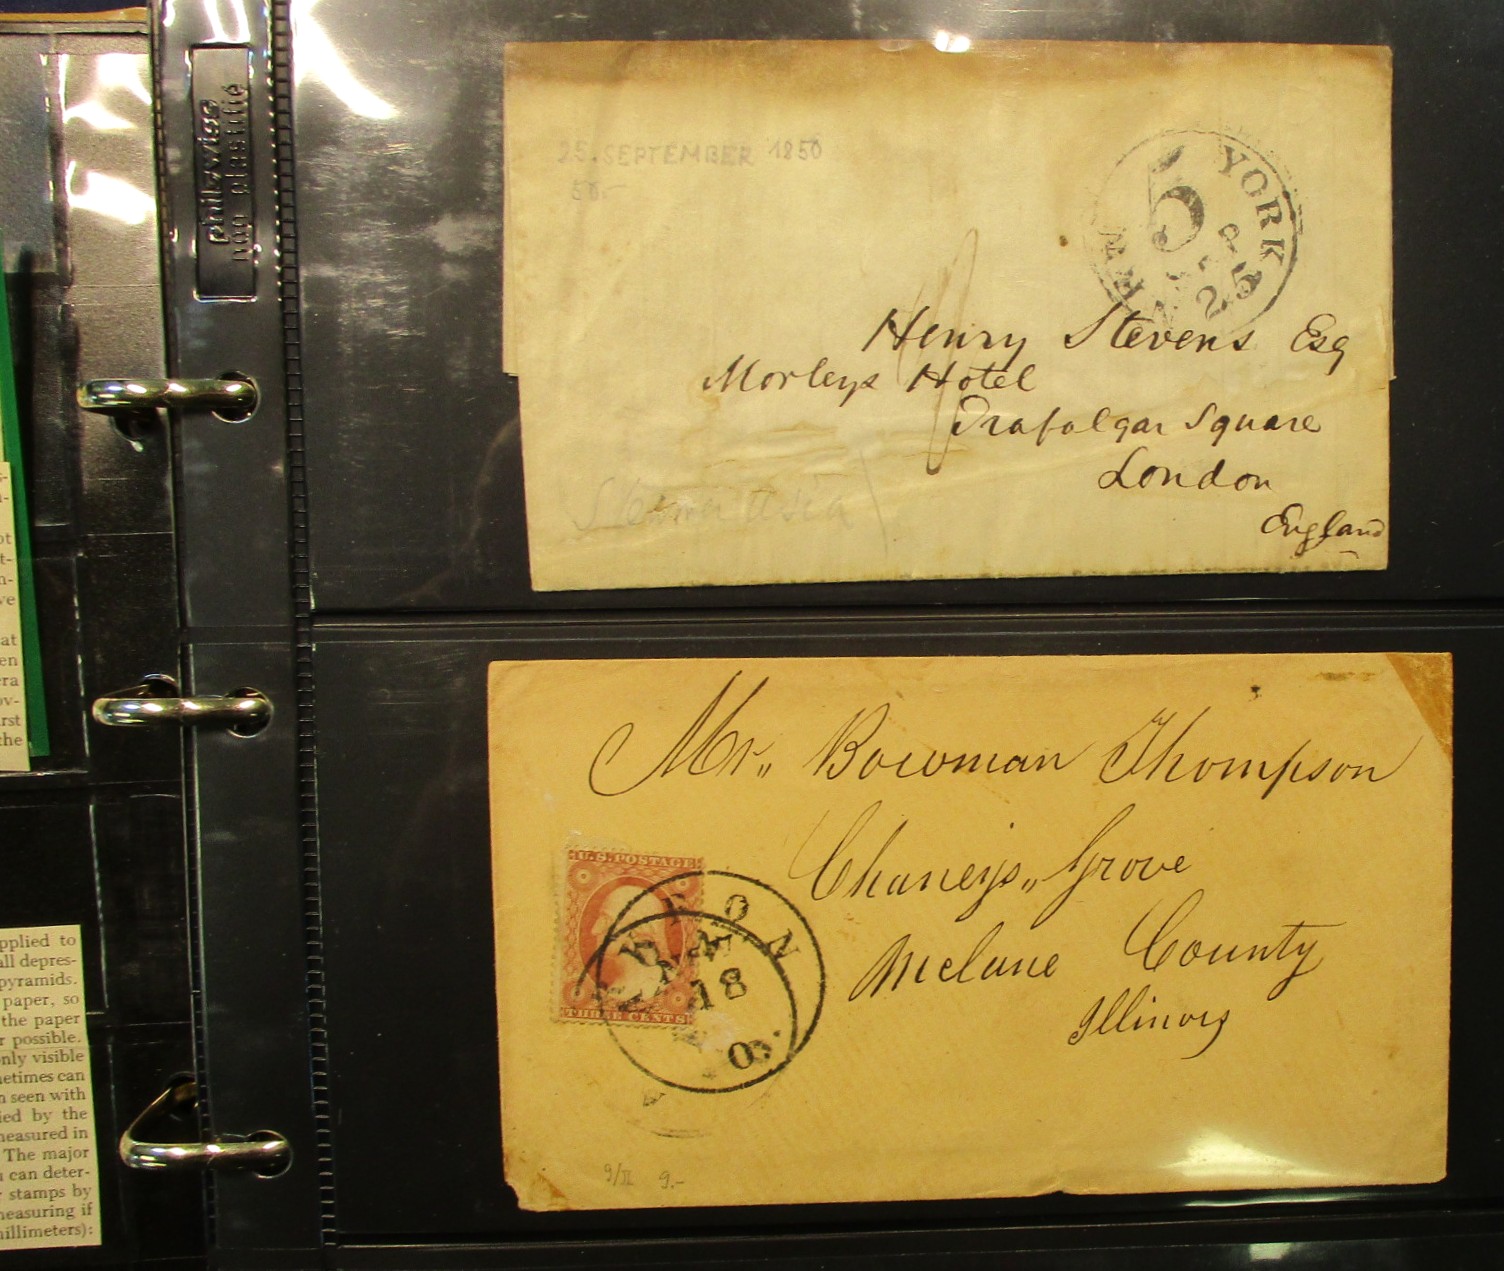 philswiss
non plastifié
25. SEPTEMBER 1850
50.-
NEW YORK
5
25
Henry Stevens Esq
Morleys Hotel
Trafalgar Square
London
England
Steamer Asia
Mr. Bowman Thompson
Chaneys Grove
Mclane County
Illinois
U.S. POSTAGE
THREE CENTS
AKRON
MAY
18
O.
9/II 9.-
ot
t-
n-
ve
at
en
era
ov-
irst
the
pplied to
all depres-
pyramids.
paper, so
the paper
r possible.
only visible
metimes can
n seen with
ied by the
measured in
The major
u can deter-
r stamps by
measuring if
nillimeters):